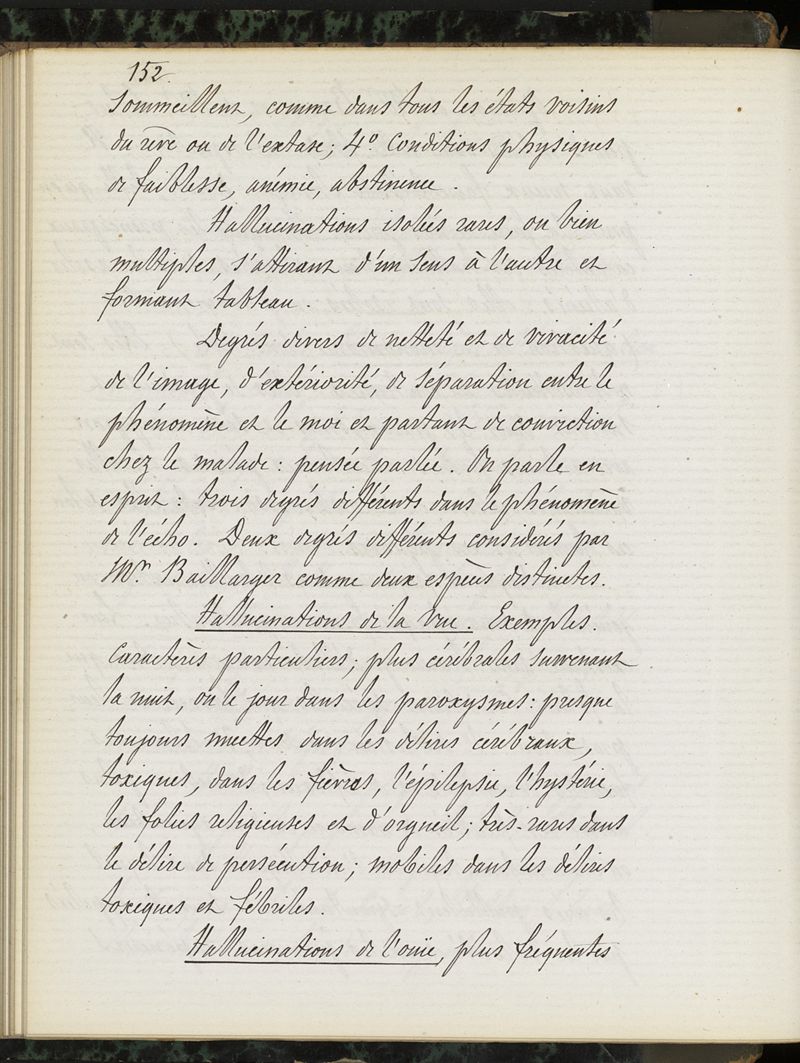 152.
sommeillent, comme dans tous les états voisins
du rêve ou de l'extase; 4º. Conditions physiques
de faiblesse, anémie, abstinence.
Hallucinations isolées rares, ou bien
multiples, s'attirant d'un sens à l'autre et
formant tableau.
Degrés divers de netteté et de vivacité
de l'image, d'extériorité, de séparation entre le
phénomène et le moi et partant de conviction
chez le malade : pensée parlée. On parle en
esprit : trois degrés différents dans le phénomène
de l'écho. Deux degrés différents considérés par
Mr. Baillarger comme deux espèces distinctes.
Hallucinations de la vue. Exemples.
Caractères particuliers; plus cérébrales survenant
la nuit, ou le jour dans les paroxysmes : presque
toujours muettes dans les délires cérébraux,
toxiques, dans les fièvres, l'épilepsie, l'hystérie,
les folies religieuses et d'orgueil; très-rares dans
le délire de persécution; mobiles dans les délires
toxiques et fébriles.
Hallucinations de l'ouïe, plus fréquentes